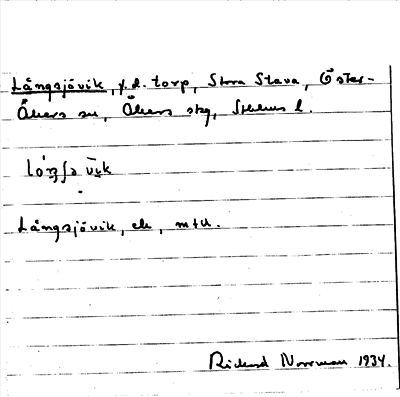 Långsjövik, f.d. torp, Stora Stava, Öster-
Åkers sn, Åkers skg, Sthlms l.
Långsjövik, ek, mtl.
Rickard Norrman 1934.